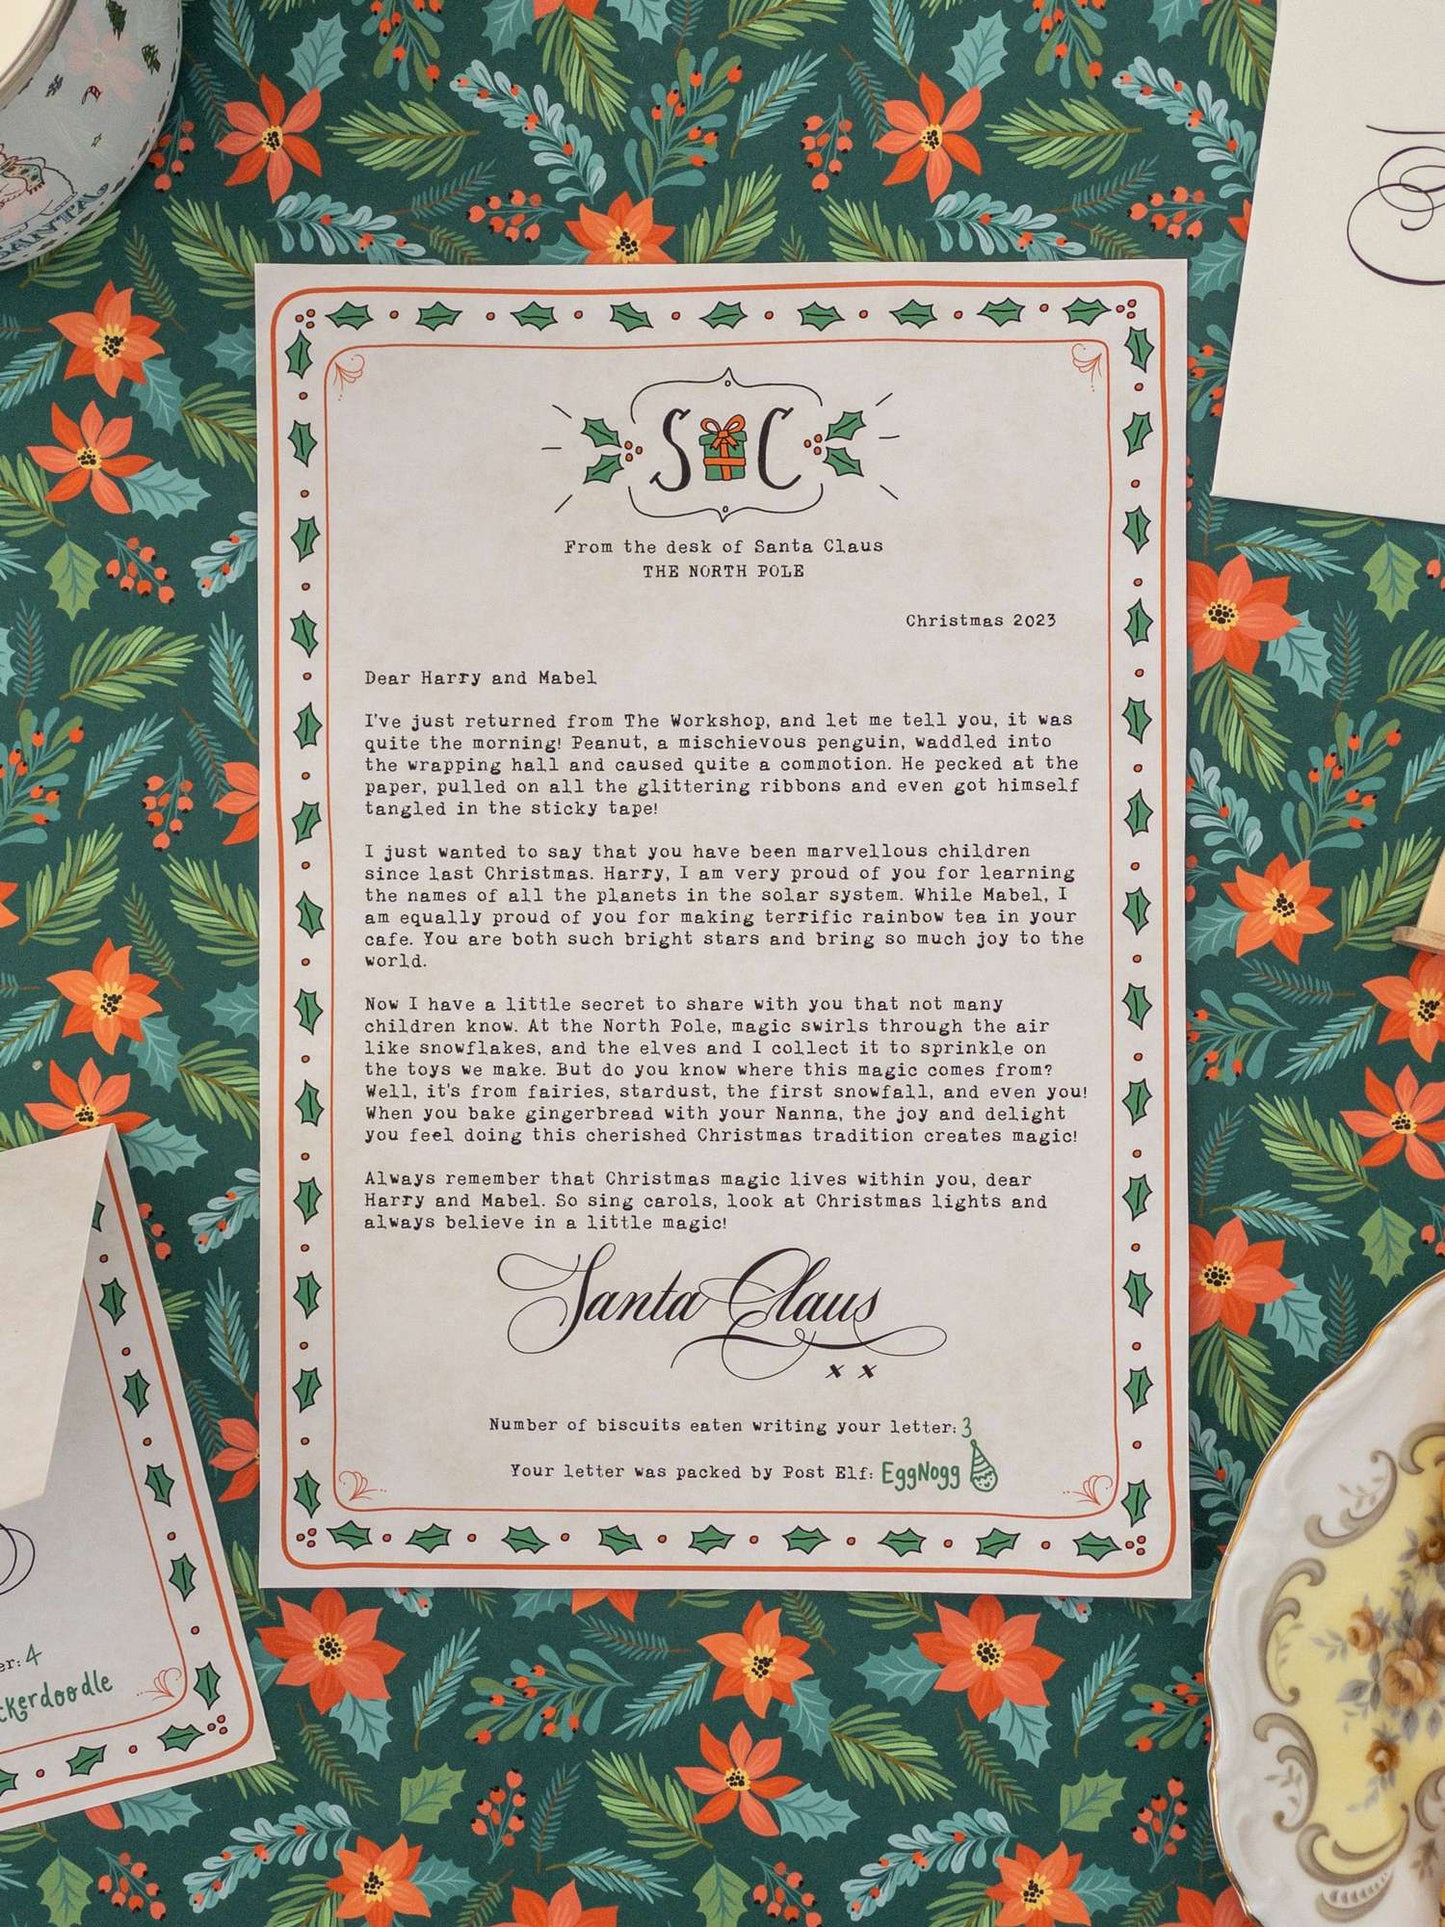 S C
From the desk of Santa Claus
THE NORTH POLE
Christmas 2023
Dear Harry and Mabel
I've just returned from The Workshop, and let me tell you, it was
quite the morning! Peanut, a mischievous penguin, waddled into
the wrapping hall and caused quite a commotion. He pecked at the
paper, pulled on all the glittering ribbons and even got himself
tangled in the sticky tape!
I just wanted to say that you have been marvellous children
since last Christmas. Harry, I am very proud of you for learning
the names of all the planets in the solar system. While Mabel, I
am equally proud of you for making terrific rainbow tea in your
cafe. You are both such bright stars and bring so much joy to the
world.
Now I have a little secret to share with you that not many
children know. At the North Pole, magic swirls through the air
like snowflakes, and the elves and I collect it to sprinkle on
the toys we make. But do you know where this magic comes from?
Well, it's from fairies, stardust, the first snowfall, and even you!
When you bake gingerbread with your Nanna, the joy and delight
you feel doing this cherished Christmas tradition creates magic!
Always remember that Christmas magic lives within you, dear
Harry and Mabel. So sing carols, look at Christmas lights and
always believe in a little magic!
Santa Claus
x x
Number of biscuits eaten writing your letter: 3
Your letter was packed by Post Elf: EggNogg
er: 4
ckerdoodle